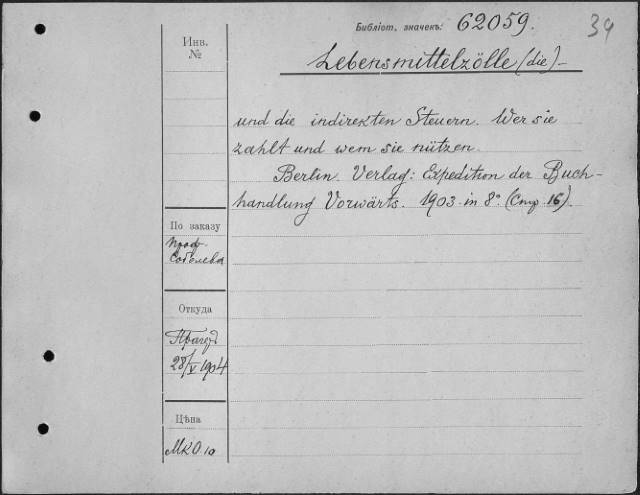 Библіот. значекъ: 62059.
39
Инв.
№
Lebensmittelzölle (die) –
und die indirekten Steuern. Wer sie
zahlt und wem sie nützen.
Berlin. Verlag: Expedition der Buch-
handlung Vorwärts. 1903 in 8° (Стр 16).
По заказу
Проф.
Соболева
Откуда
28/V 1904
Цѣна
MK 0 10